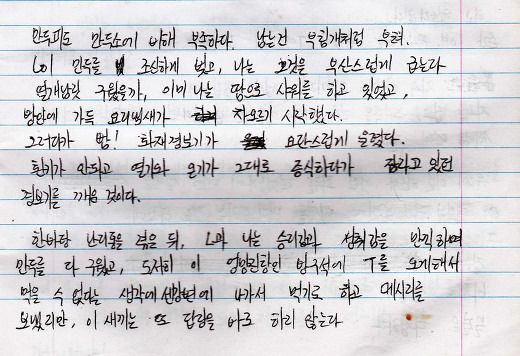 만두피도 만두소에 비해 부족하다. 남는건 부침개처럼 부쳐.
L이 만두를 조신하게 빚고, 나는 그것을 부산스럽게 굽는다
열개남짓 구웠을까, 이미 나는 땀으로 샤워를 하고 있었고,
방안에 가득 요리냄새가 차오르기 시작했다.
그러다가 빵! 화재경보기가 요란스럽게 울렸다.
환기가 안되고 열기와 온기가 그대로 증식하다가 잠자고 있던
경보기를 깨운 것이다.
한바탕 난리통을 겪은 뒤, L과 나는 승리감과 성취감을 만끽하며
만두를 다 구웠고, 도저히 이 엉망진창인 방구석에 T를 오게해서
먹을 수 없다는 생각에 나가서 먹기로 하고 메시지를
보냈지만, 이 새끼는 또 답장을 바로 하지 않는다